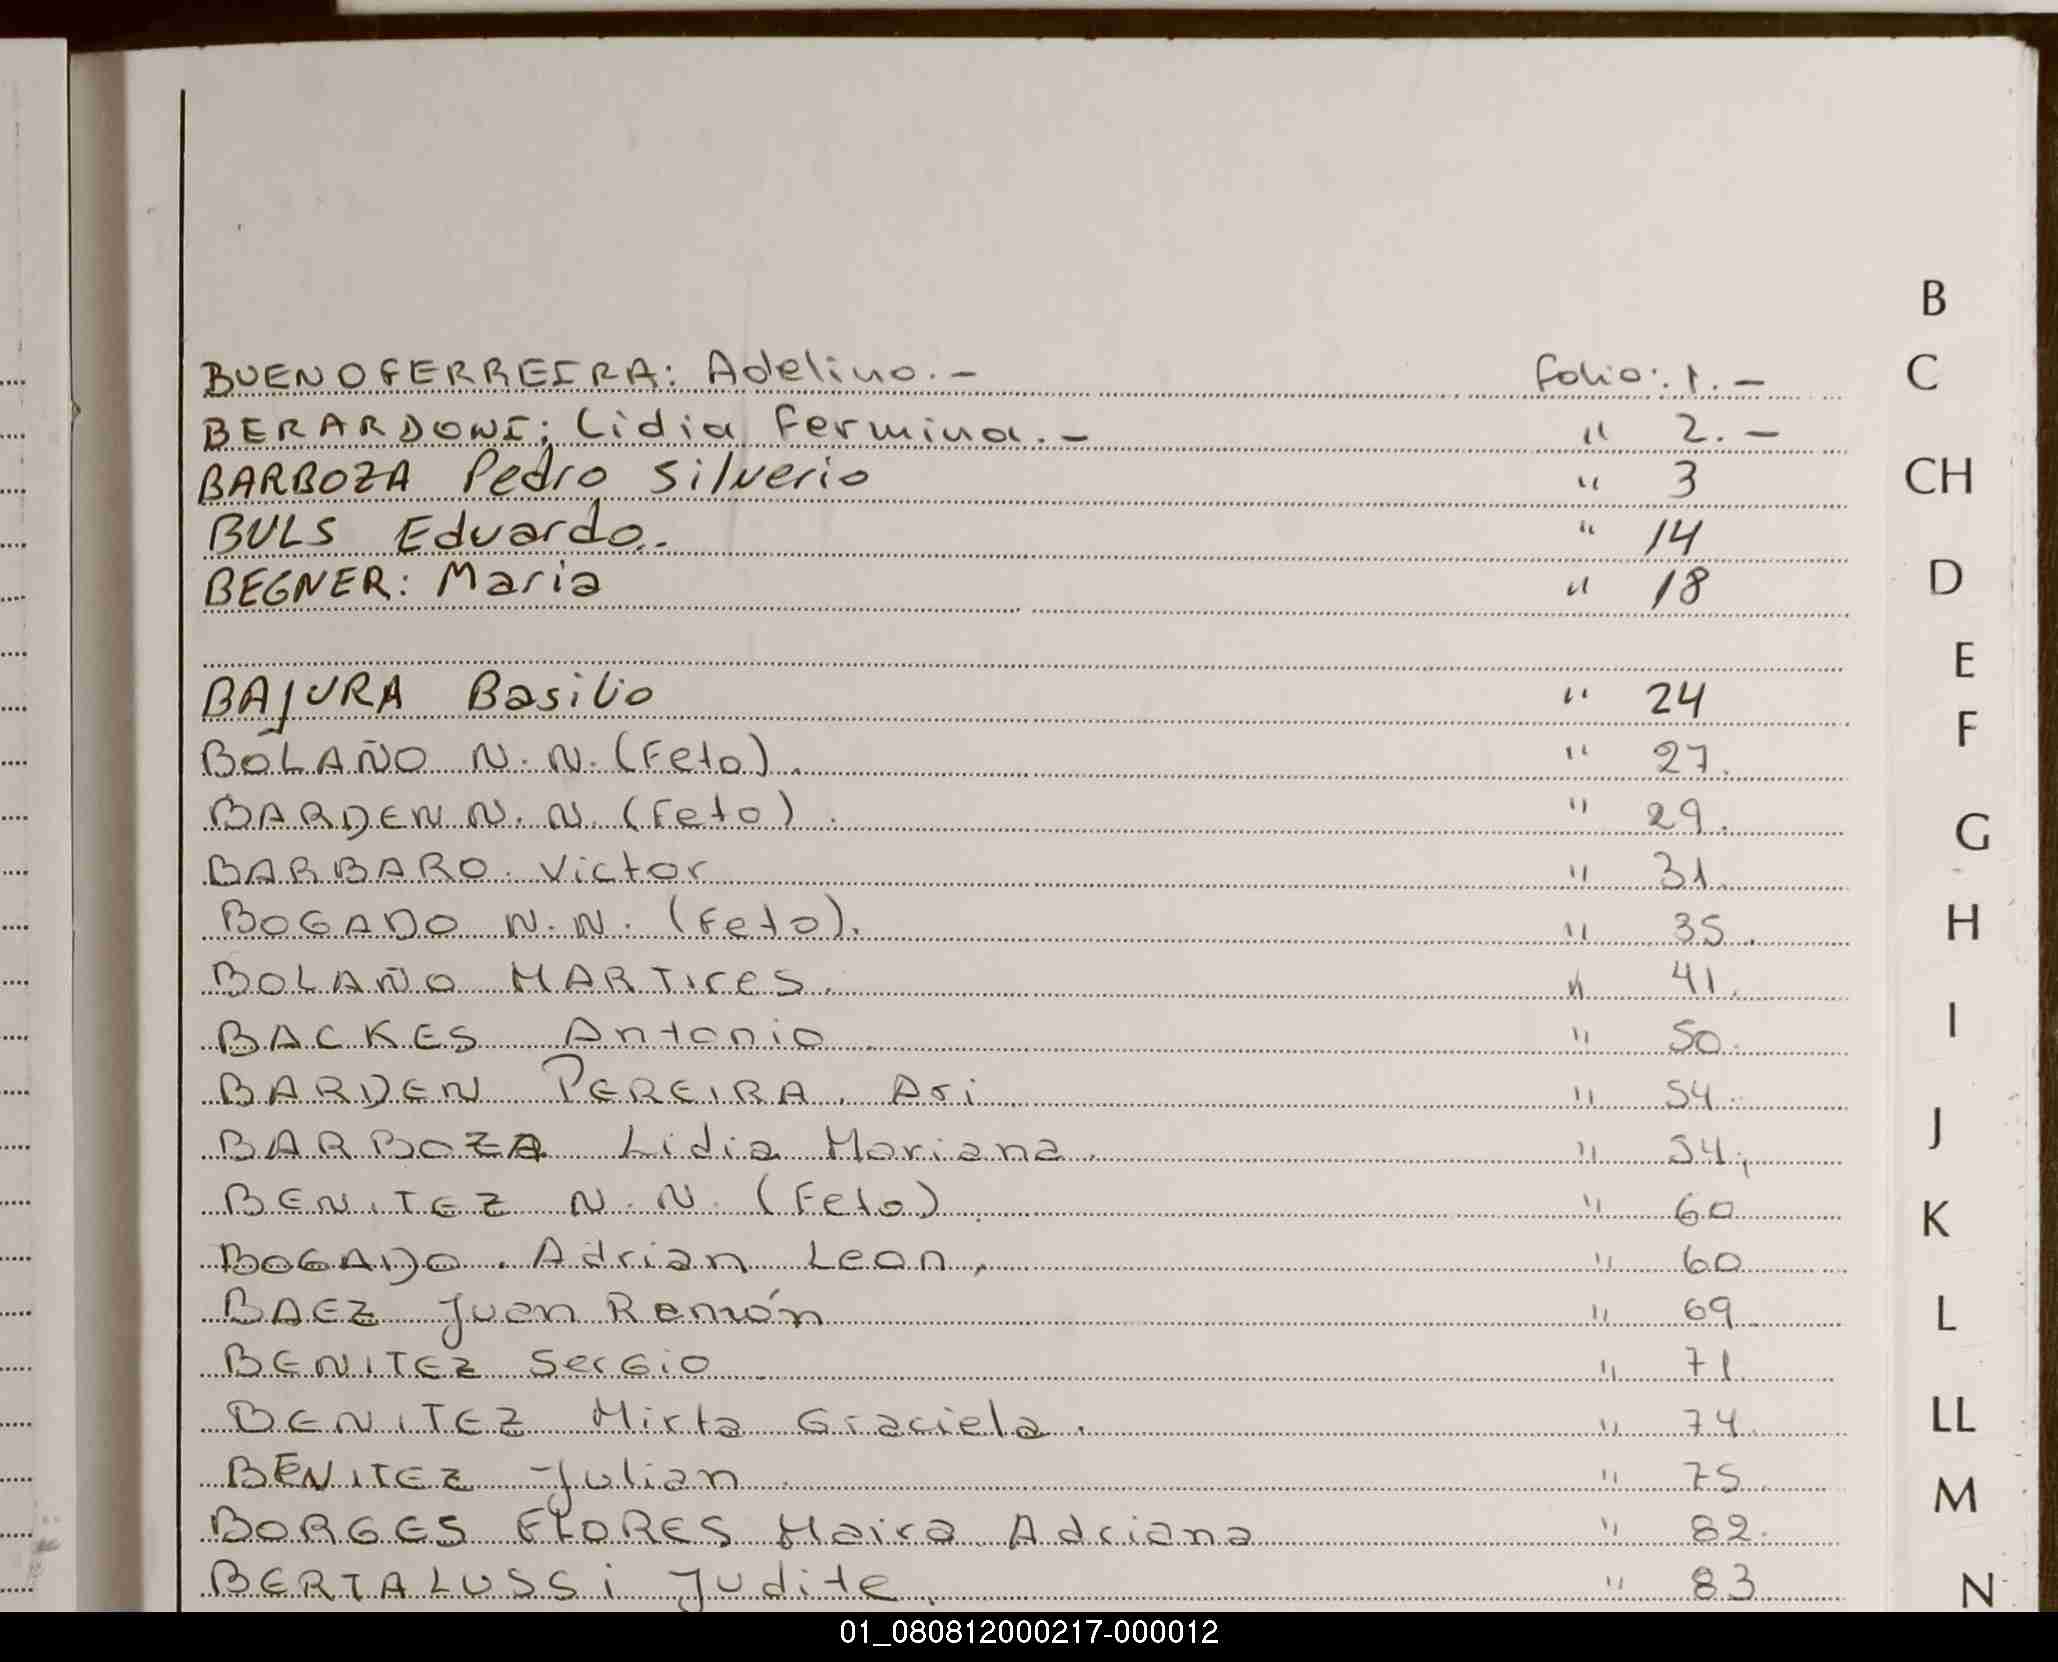 BUENO FERREIRA: Adelino.- folio: 1.-
BERARDONI: Lidia Fermina.- " 2.-
BARBOZA Pedro Silverio " 3
BULS Eduardo.. " 14
BEGNER: Maria " 18
BAJURA Basilio " 24
BOLAÑO N.N. (Feto). " 27.
BARDEN N.N. (Feto). " 29.
BARBARO. Victor " 31.
BOGADO N.N. (Feto). " 35.
BOLAÑO MARTires. " 41.
BACKES Antonio. " 50.
BARDEN PEREIRA. Ari " 54.
BARBOZA Lidia Mariana. " 54.
BENITEZ N.N. (Feto). " 60
BOGADO. Adrian Leon. " 60
BAEZ Juan Ramón " 69
BENITEZ Sergio " 71.
BENITEZ Mirta Graciela. " 74.
BENITEZ Julian. " 75.
BORGES FLORES Maira Adriana " 82.
BERTALUSSi Judite. " 83
B
C
CH
D
E
F
G
H
I
J
K
L
LL
M
N
01_080812000217-000012